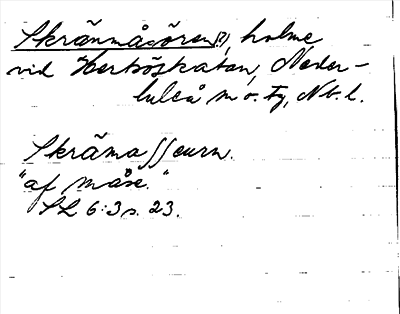 Skränmåsören(?), holme,
vid Hertsöskatan, Neder-
luleå sn o. Fg, Nb. l.
Skräma ſſ eurn.
"af måse."
SL 6:3 s. 23.